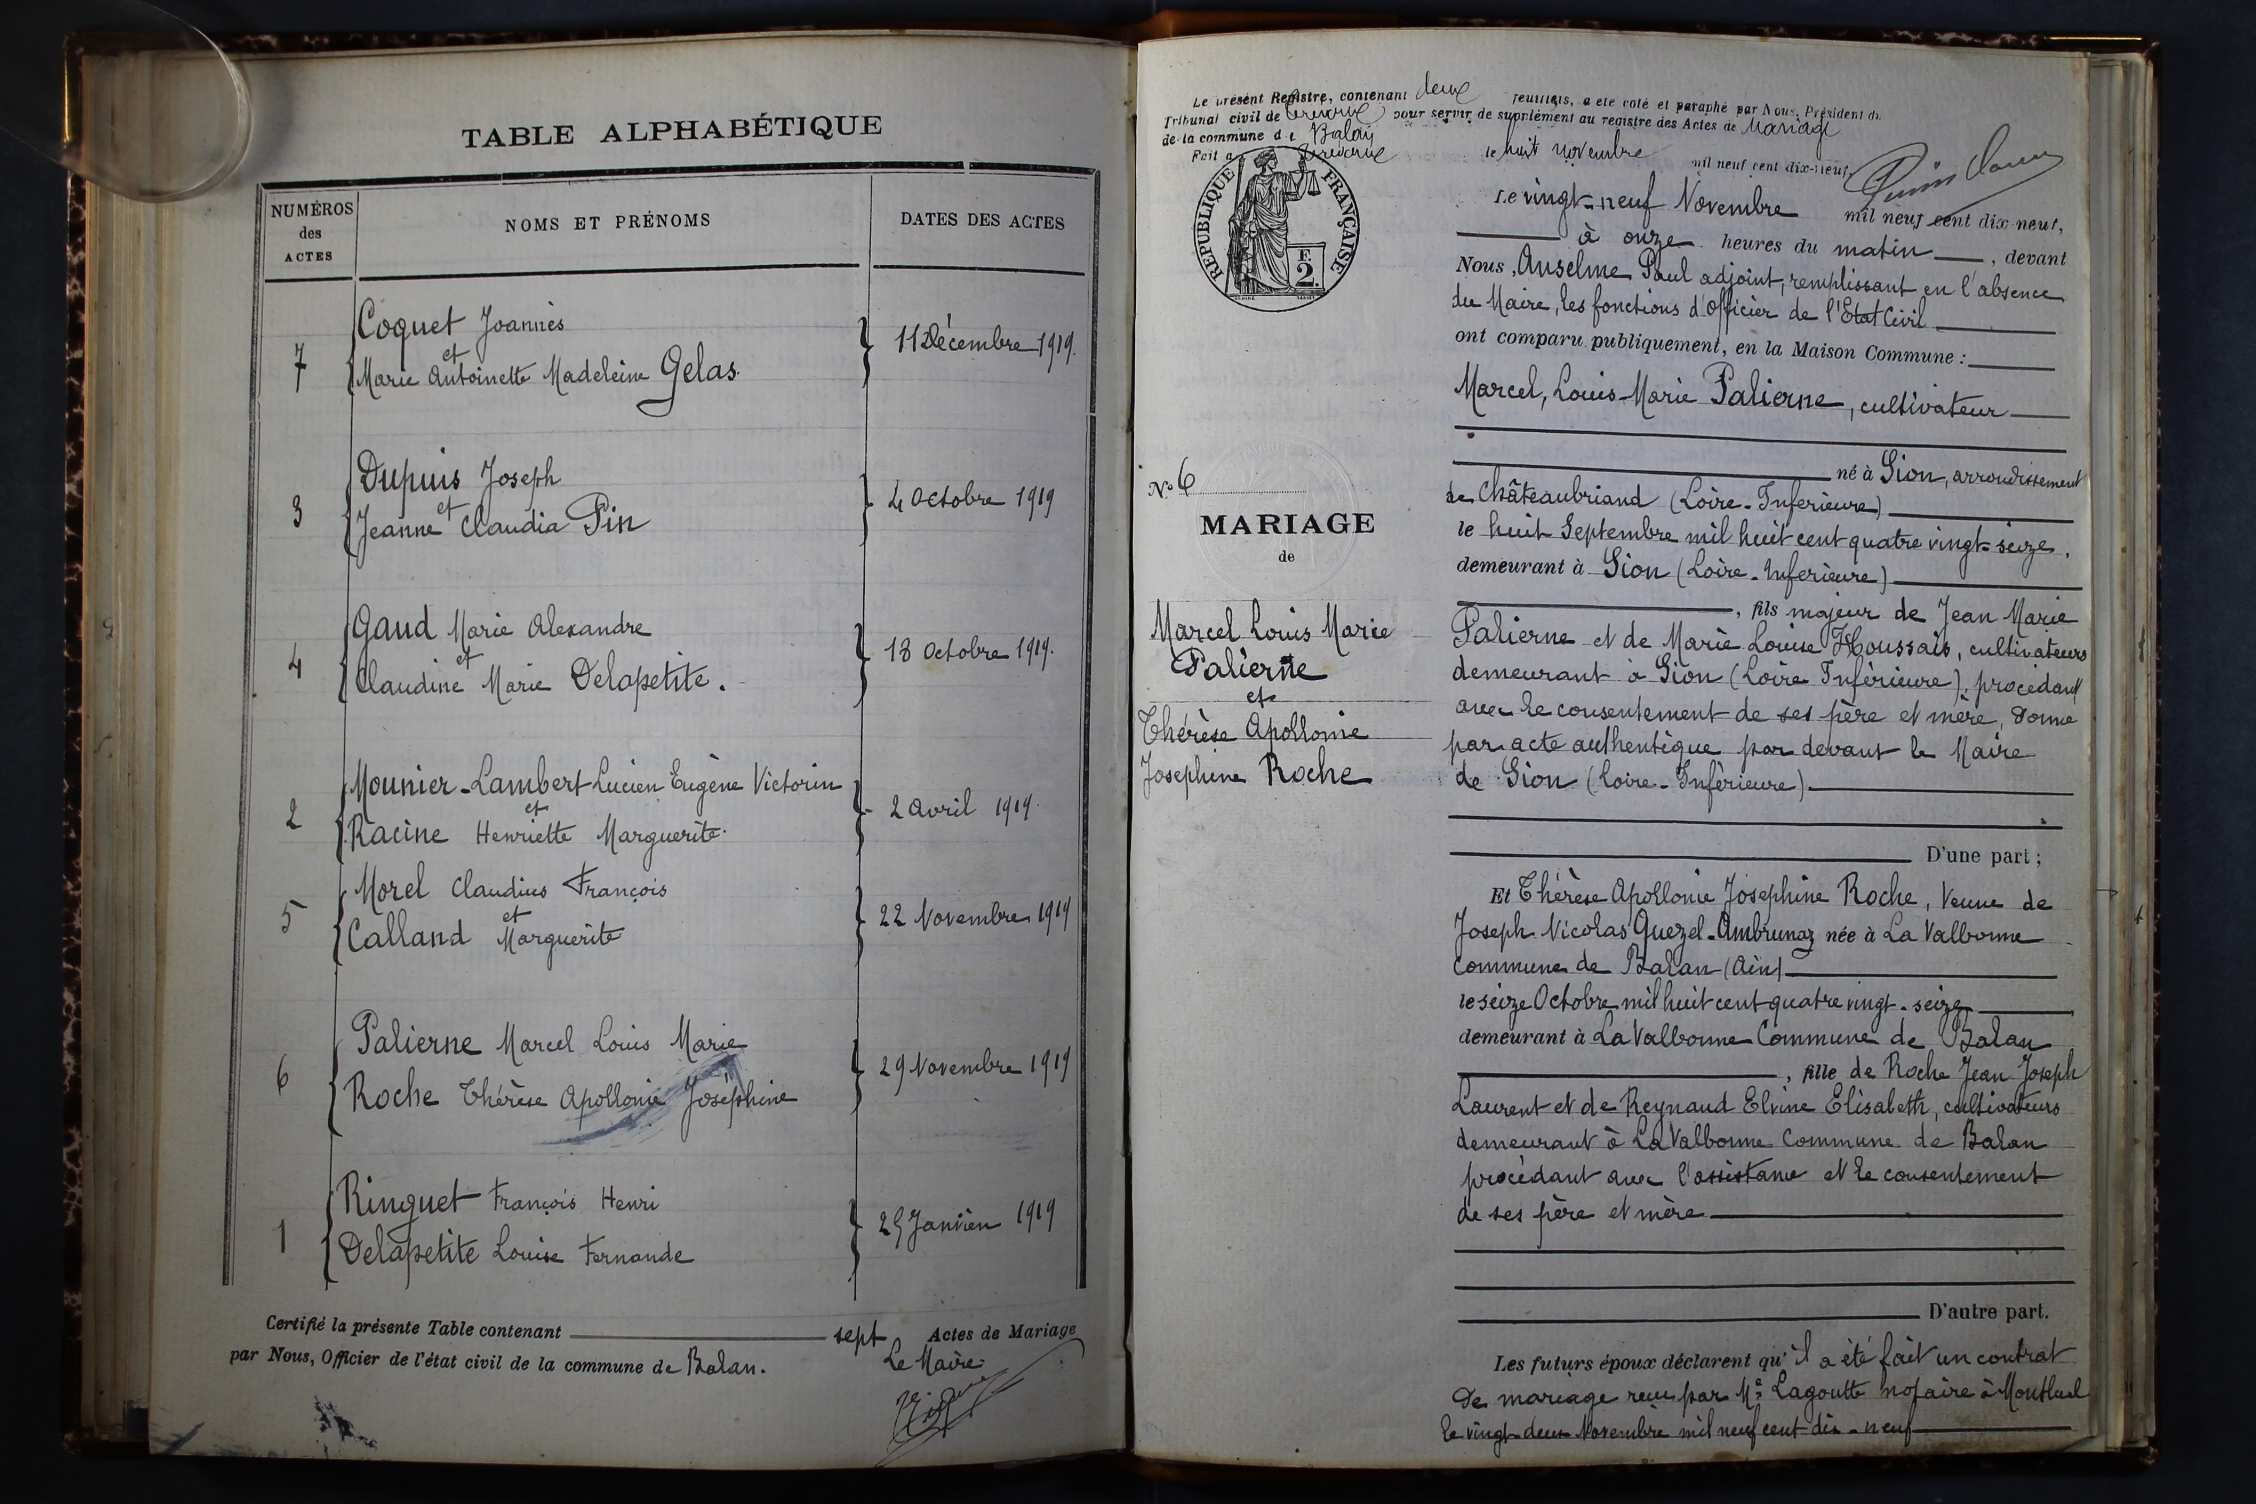 TABLE ALPHABÉTIQUE
NUMÉROS
des
ACTES
NOMS ET PRÉNOMS
DATES DES ACTES
Coquet Joannès
et
7
Marie Antoinette Madeleine Gelas.
11 Décembre 1919.
Dupuis Joseph
et
3
Jeanne Claudia Pin
4 Octobre 1919
Gaud Marie Alexandre
et
4
Claudine Marie Delapetite.
18 Octobre 1919.
Mounier-Lambert Lucien Eugène Victorin
et
2
Racine Henriette Marguerite.
2 Avril 1919.
Morel Claudius François
et
5
Calland Marguerite
22 Novembre 1919
Palierne Marcel Louis Marie
6
Roche Thérèse Apollonie Joséphine
29 Novembre 1919
Ringuet François Henri
1
Delapetite Louise Fernande
25 Janvier 1919
Certifié la présente Table contenant sept Actes de Mariage
par Nous, Officier de l'état civil de la commune de Balan.
Le Maire
Le présent Registre, contenant deux feuillets, a été coté et paraphé par Nous, Président du
Tribunal civil de Trévoux pour servir de supplément au registre des Actes de Mariage
de la commune de Balan
Fait à Trévoux le huit novembre mil neuf cent dix-neuf
RÉPUBLIQUE FRANÇAISE
F.
2
Le vingt-neuf Novembre mil neuf cent dix-neuf,
à onze heures du matin, devant
Nous, Anselme Paul adjoint, remplissant en l'absence
du Maire, les fonctions d'Officier de l'Etat Civil
ont comparu publiquement, en la Maison Commune :
Marcel, Louis-Marie Palierne, cultivateur
né à Sion, arrondissement
de Châteaubriand (Loire-Inferieure)
le huit Septembre mil huit cent quatre vingt-seize,
demeurant à Sion (Loire-Inferieure)
, fils majeur de Jean Marie
Palierne et de Marie Louise Houssais, cultivateurs
demeurant à Sion (Loire Inférieure), procédant
avec le consentement de ses père et mère, donné
par acte authentique par devant le Maire
de Sion (Loire-Inférieure)
D'une part ;
N° 6
MARIAGE
de
Marcel Louis Marie
Palierne
et
Thérèse Apollonie
Josephine Roche
Et Thérèse Apollonie Josephine Roche, Veuve de
Joseph Nicolas Quezel-Ambrunaz née à La Valbonne
Commune de Balan (Ain)
le seize Octobre mil huit cent quatre vingt-seize
demeurant à La Valbonne Commune de Balan
, fille de Roche Jean Joseph
Laurent et de Reynaud Elvine Elisabeth, cultivateurs
demeurant à La Valbonne Commune de Balan
procédant avec l'assistance et le consentement
de ses père et mère
D'autre part.
Les futurs époux déclarent qu'il a été fait un contrat
de mariage reçu par Me Lagoutte notaire à Montluel
le vingt-deux Novembre mil neuf cent dix-neuf